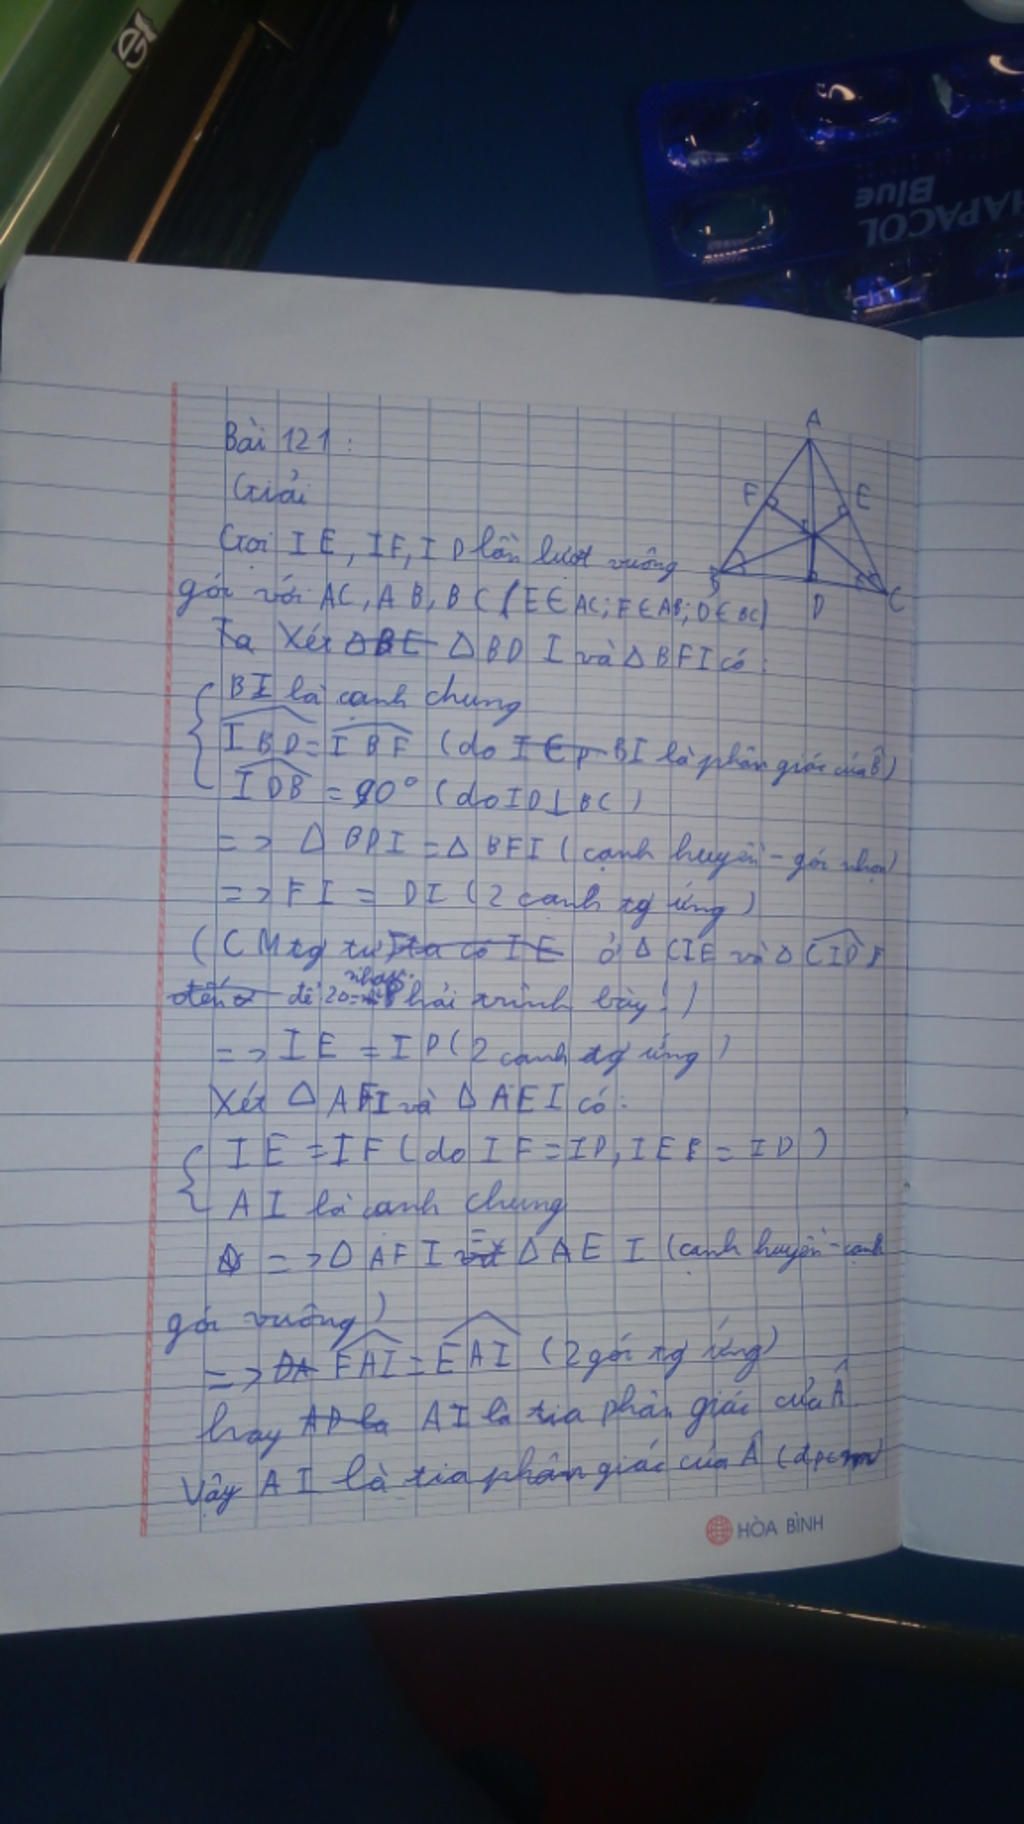 HAPACOL
Blue
Bài 121:
Giải
A
F
E
B
D
C
Gọi IE, IF, ID lần lượt vuông
góc với AC, AB, BC (E∈AC; F∈AB; D∈BC)
Ta xét ΔBE ΔBDI và ΔBFI có:
BI là cạnh chung
IBD = IBF (do BI là phân giác của B̂)
IDB = 90° (do ID⊥BC)
=> ΔBDI = ΔBFI (cạnh huyền - góc nhọn)
=> FI = DI (2 cạnh tg ứng)
(CM tg tự ta có IE ở ΔCIE và ΔCID
để phải trình bày!)
=> IE = ID (2 cạnh tg ứng)
Xét ΔAFI và ΔAEI có:
IE = IF (do IF = ID, IE = ID)
AI là cạnh chung
=> ΔAFI = ΔAEI (cạnh huyền - cạnh
góc vuông)
=> FAI = EAI (2 góc tg ứng)
hay AD là AI là tia phân giác của Â
Vậy AI là tia phân giác của Â (đpcm)
HÒA BÌNH